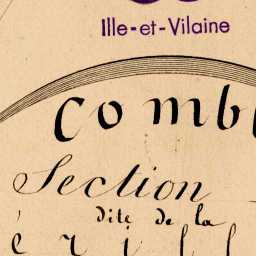 Ille-et-Vilaine
Comb
Section
dite de la
é r i l l